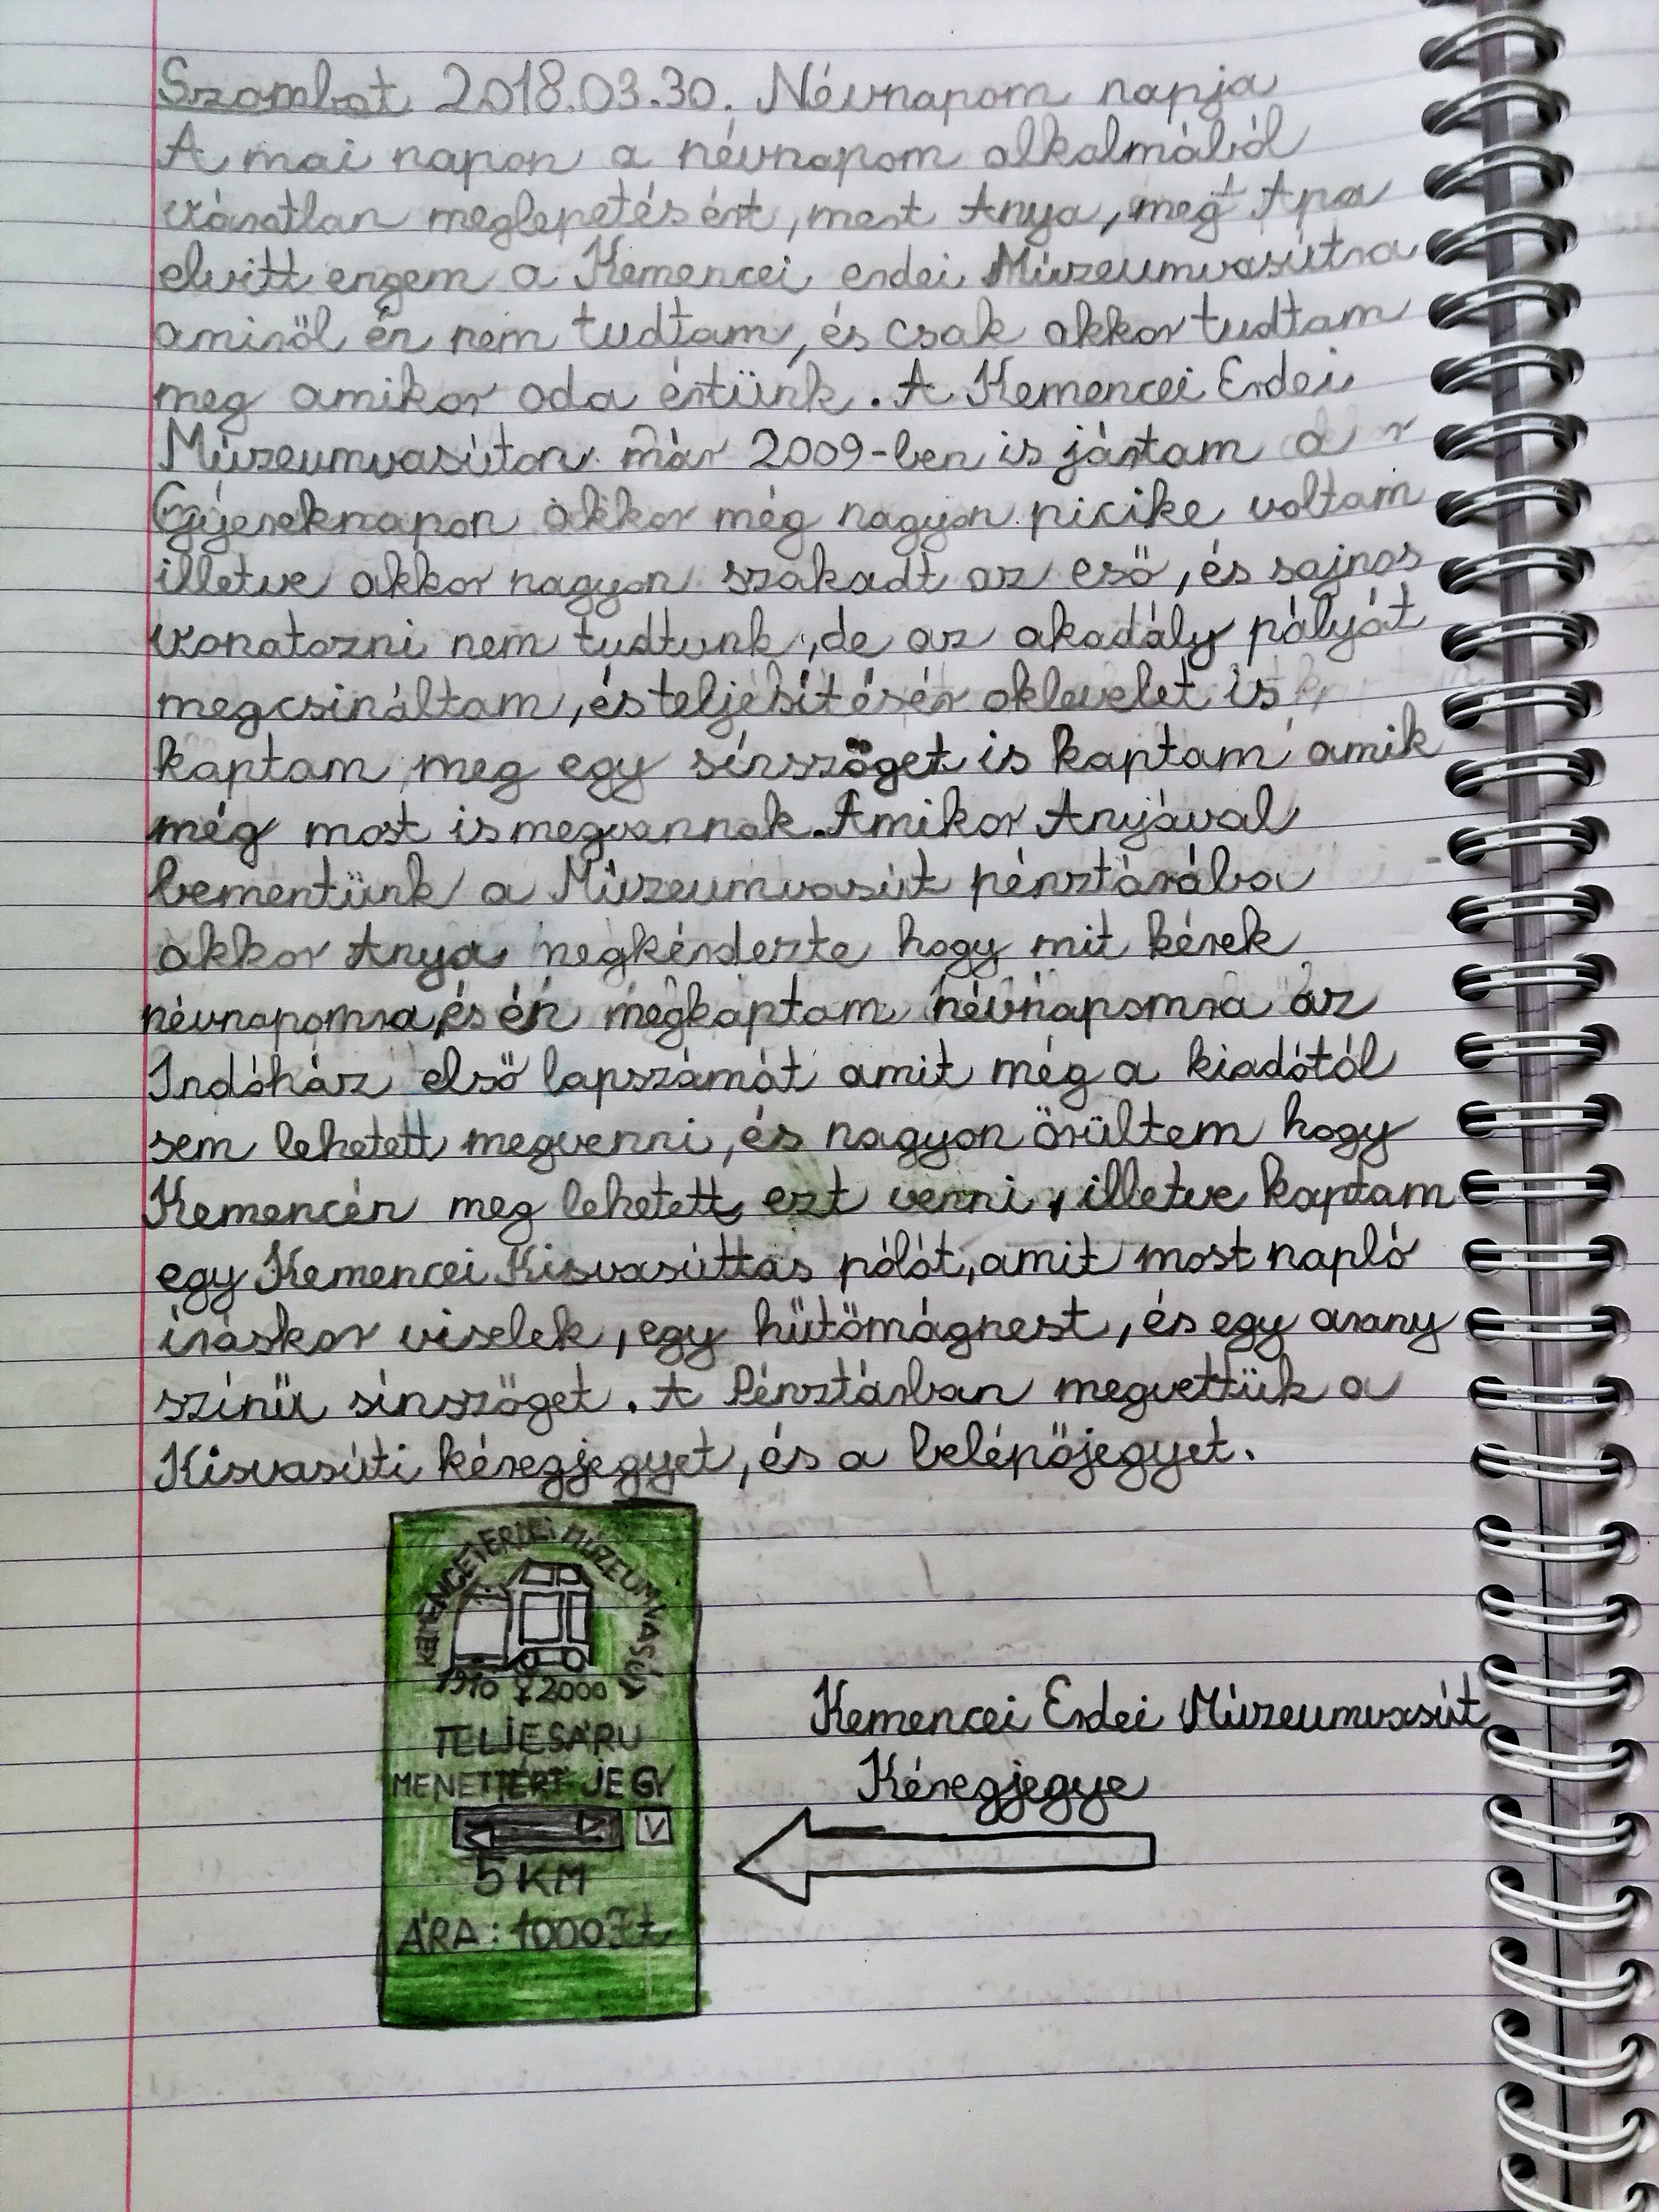 Szombat 2018.03.30. Névnapom napja
A mai napon a névnapom alkalmából
váratlan meglepetés ért, mert Anya, meg Apa
elvitt engem a Kemencei erdei Múzeumvasútra
amiről én nem tudtam, és csak akkor tudtam
meg amikor oda értünk. A Kemencei Erdei
Múzeumvasúton már 2009-ben is jártam a
Gyereknapon akkor még nagyon picike voltam
illetve akkor nagyon szakadt az eső, és sajnos
vonatozni nem tudtunk, de az akadály pályát
megcsináltam, és teljesítésén oklevelet is
kaptam, meg egy sínszöget is kaptam amik
még most is megvannak. Amikor Anyával
bementünk a Múzeumvasút pénztárába
akkor Anya megkérdezte hogy mit kérek
névnapomra, és én megkaptam névnapomra az
Indóház első lapszámát amit még a kiadótól
sem lehetett megvenni, és nagyon örültem hogy
Kemencén meg lehetett ezt venni, illetve kaptam
egy Kemencei Kisvasúttas pólót, amit most napló
íráskor viselek, egy hűtőmágnest, és egy arany
színű sínszöget. A Pénztárban megvettük a
Kisvasúti kéregjegyet, és a belépőjegyet.
KEMENCEI ERDEI MÚZEUMVASÚT
2000
TELJESÁRU
MENETTÉRT JEGY
V
5 KM
ÁRA: 1000 Ft
Kemencei Erdei Múzeumvasút
Kéregjegye